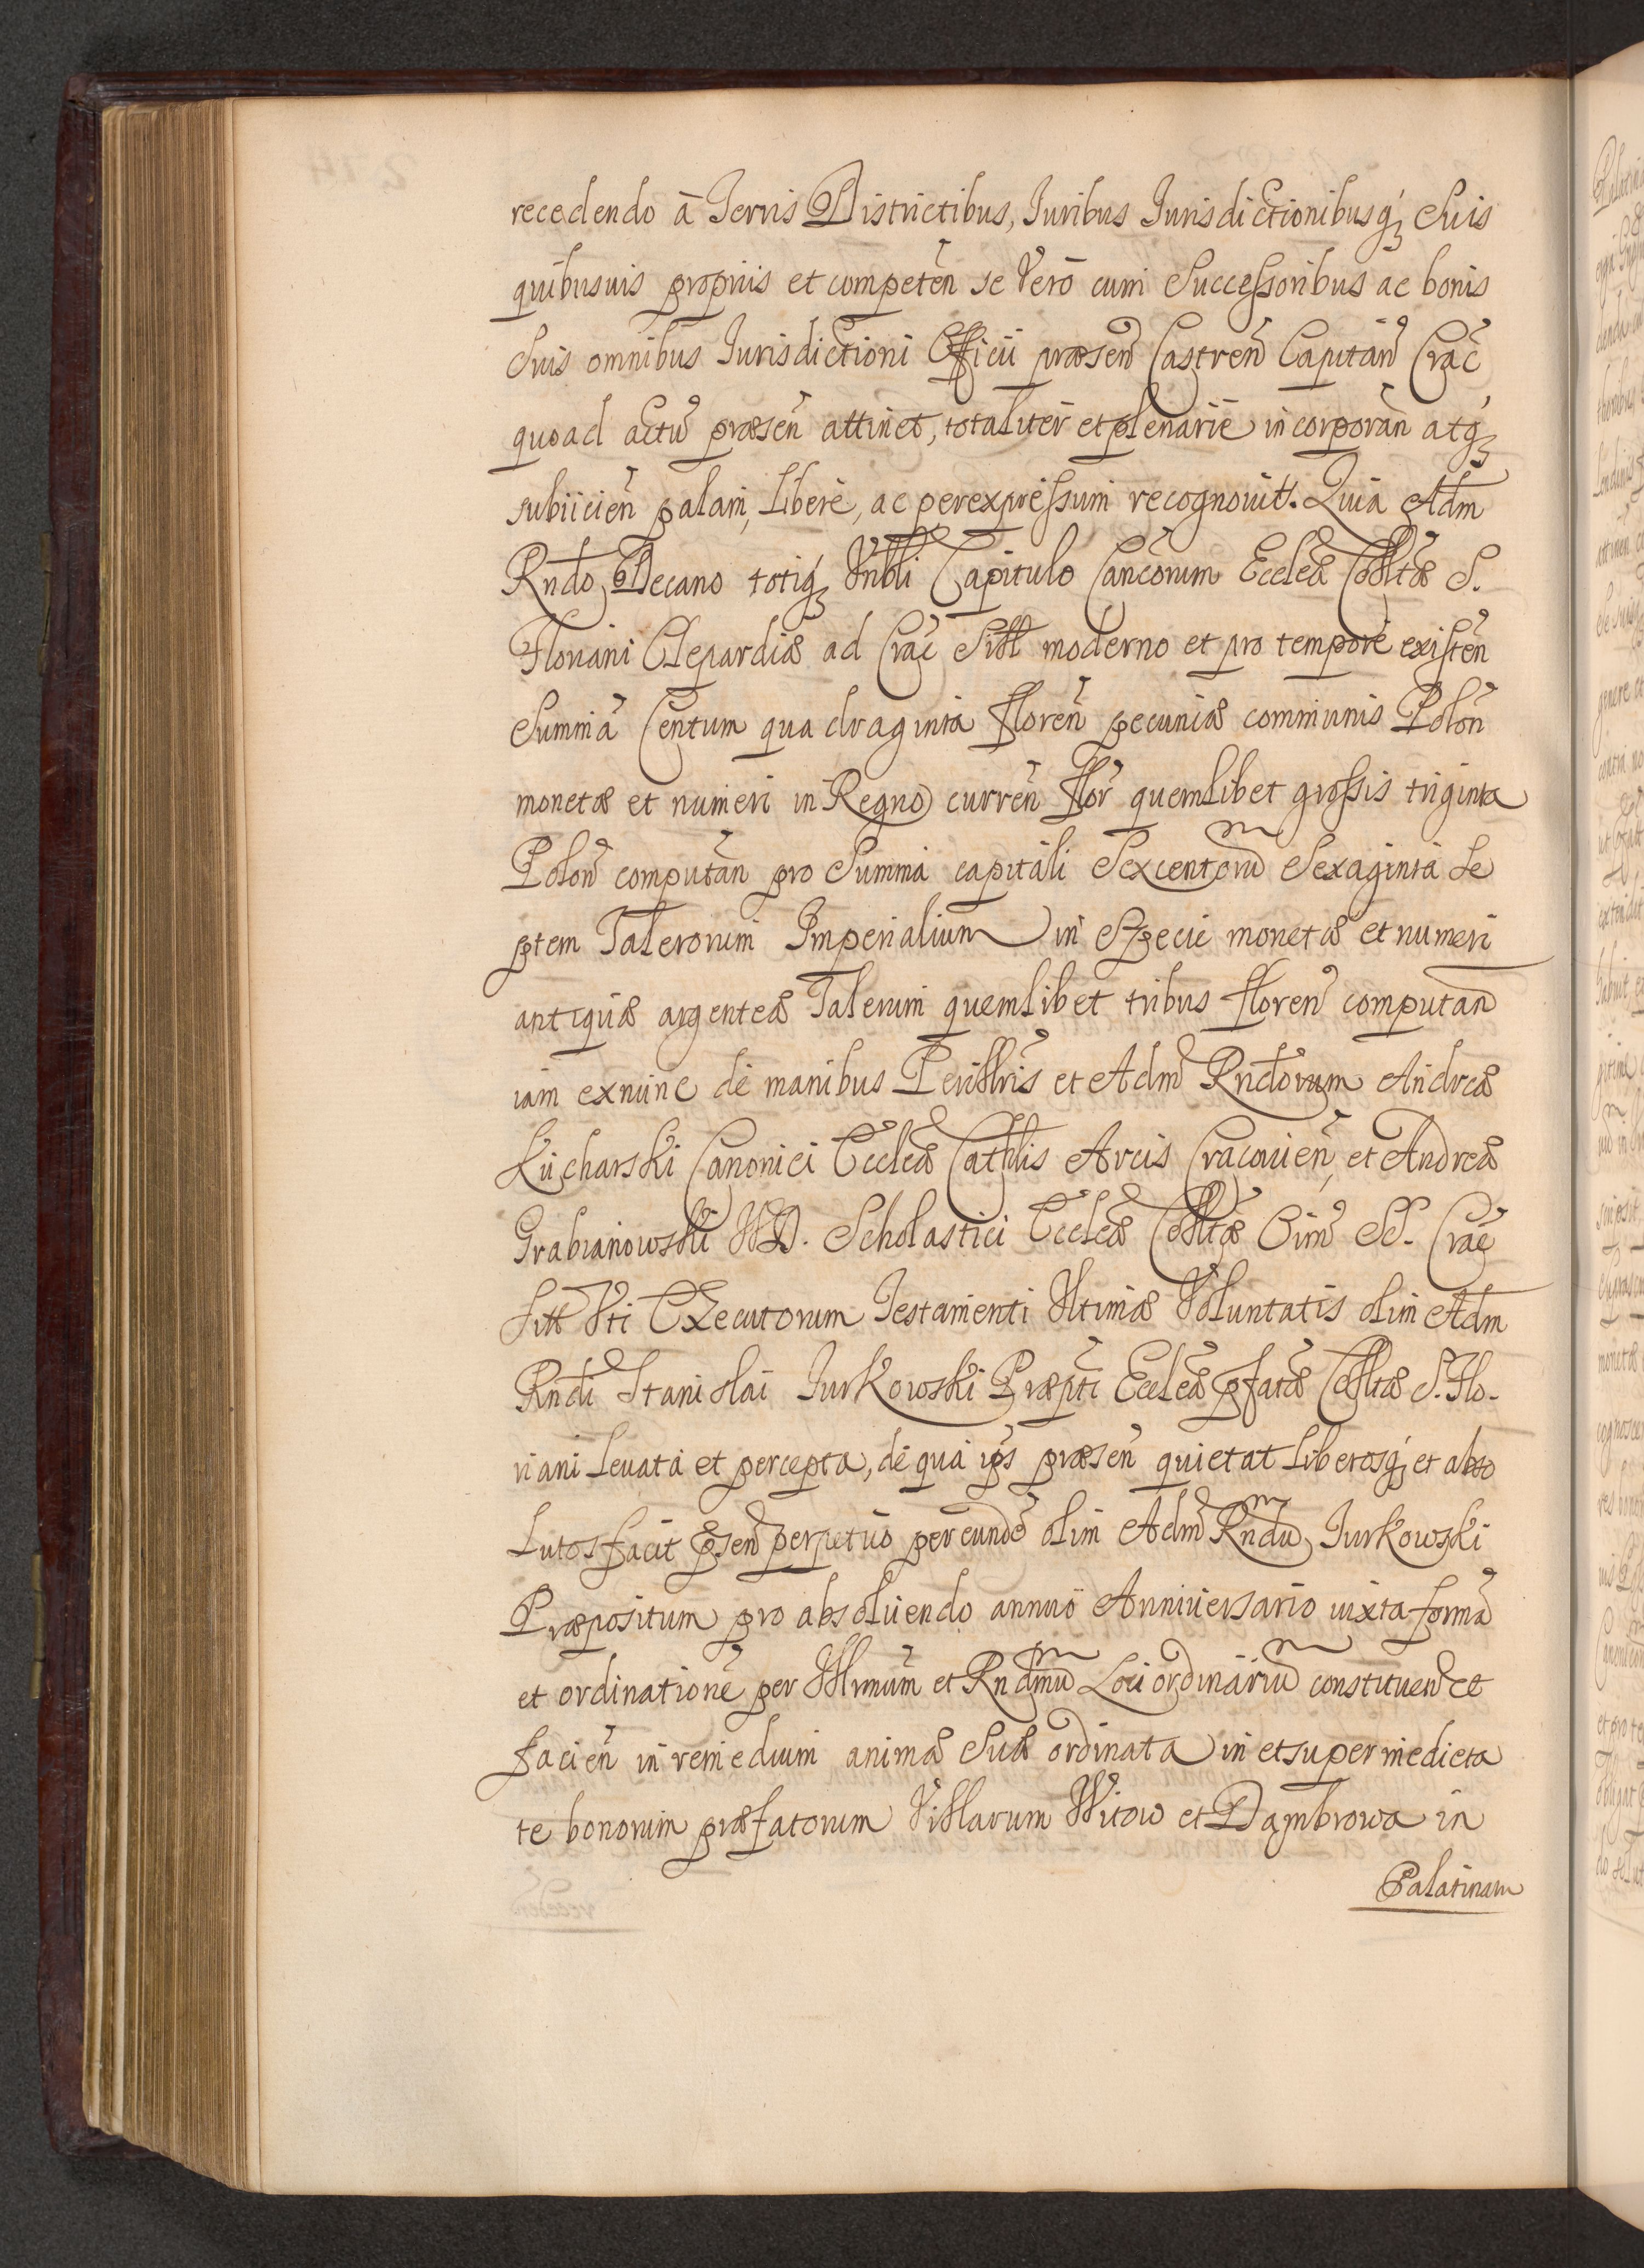 recedendo à Terris Districtibus, Iuribus Iurisdictionibusq́ꝫ Suis
quibusuis proprijs et competeñ se Vero cum Successoribus ac bonis
Suis omnibus Iurisdictioni Officii præseñ Castreñ Capitañ Crać
quoad actũ præseñ attinet, totaliter et plenarie incorporañ atqꝫ
subiicieñ palam, Libere, ac per expressum recognouit. Quia Adm
Rndo Decano totiqꝫ Vnbli Capitulo Cancorum Ecclæ Colltæ S.
Floriani Clepardiæ ad Crać Sitt moderno et pro tempore existeñ
Summa Centum quadraginta floreñ pecuniæ communis Poloñ
monetæ et numeri in Regno curreñ flor quemlibet grossis triginta
Poloñ computañ pro Summa capitali Sexcentorũ Sexaginta Se
ptem Talerorum Imperialium in Specie monetæ et numeri
antiquæ argenteæ Talerum quemlibet tribus floreñ computañ
iam exnunc de manibus Perillris et Adm Rndorum Andreæ
Kucharski Canonici Ecclæ Cathlis Arcis Cracouieñ, et Andreæ
Grabianowski VD. Scholastici Ecclæ Colltæ Oim SS. Crać
Sitt Vti Executorum Testamenti Vltimæ Voluntatis olim Adm
Rndi Stanislai Iurkowski Præpti Ecclæ pfatæ Colltæ S. Flo-
riani Leuata et percepta, de qua ips præseñ quietat Liberosq́ꝫ et abso
Lutos facit pseñ perpetuo per eundẽ olim Adm Rndũ Iurkowski
Præpositum pro absoluendo annuo Anniuersario iuxta formã
et ordinationẽ per Illrmum et Rndmũ Loci ordinariũ constituend et
facieñ in remedium animæ Suæ ordinata in et super medieta
te bonorum præfatorum Villarum Witow et Dambrowa in
Palatinam